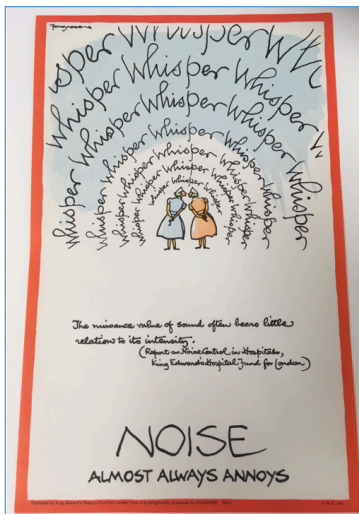 Fougasse
whisper Whisper Whisper Whisper Whi
Whisper Whisper Whisper Whisper
Whisper Whisper Whisper Whisper
Whisper Whisper Whisper
Whisper Whisper Whisper
whisper whisper whisper
The nuisance value of sound often bears little
relation to its intensity.
(Report on Noise Control in Hospitals,
King Edward's Hospital Fund for London)
NOISE
ALMOST ALWAYS ANNOYS